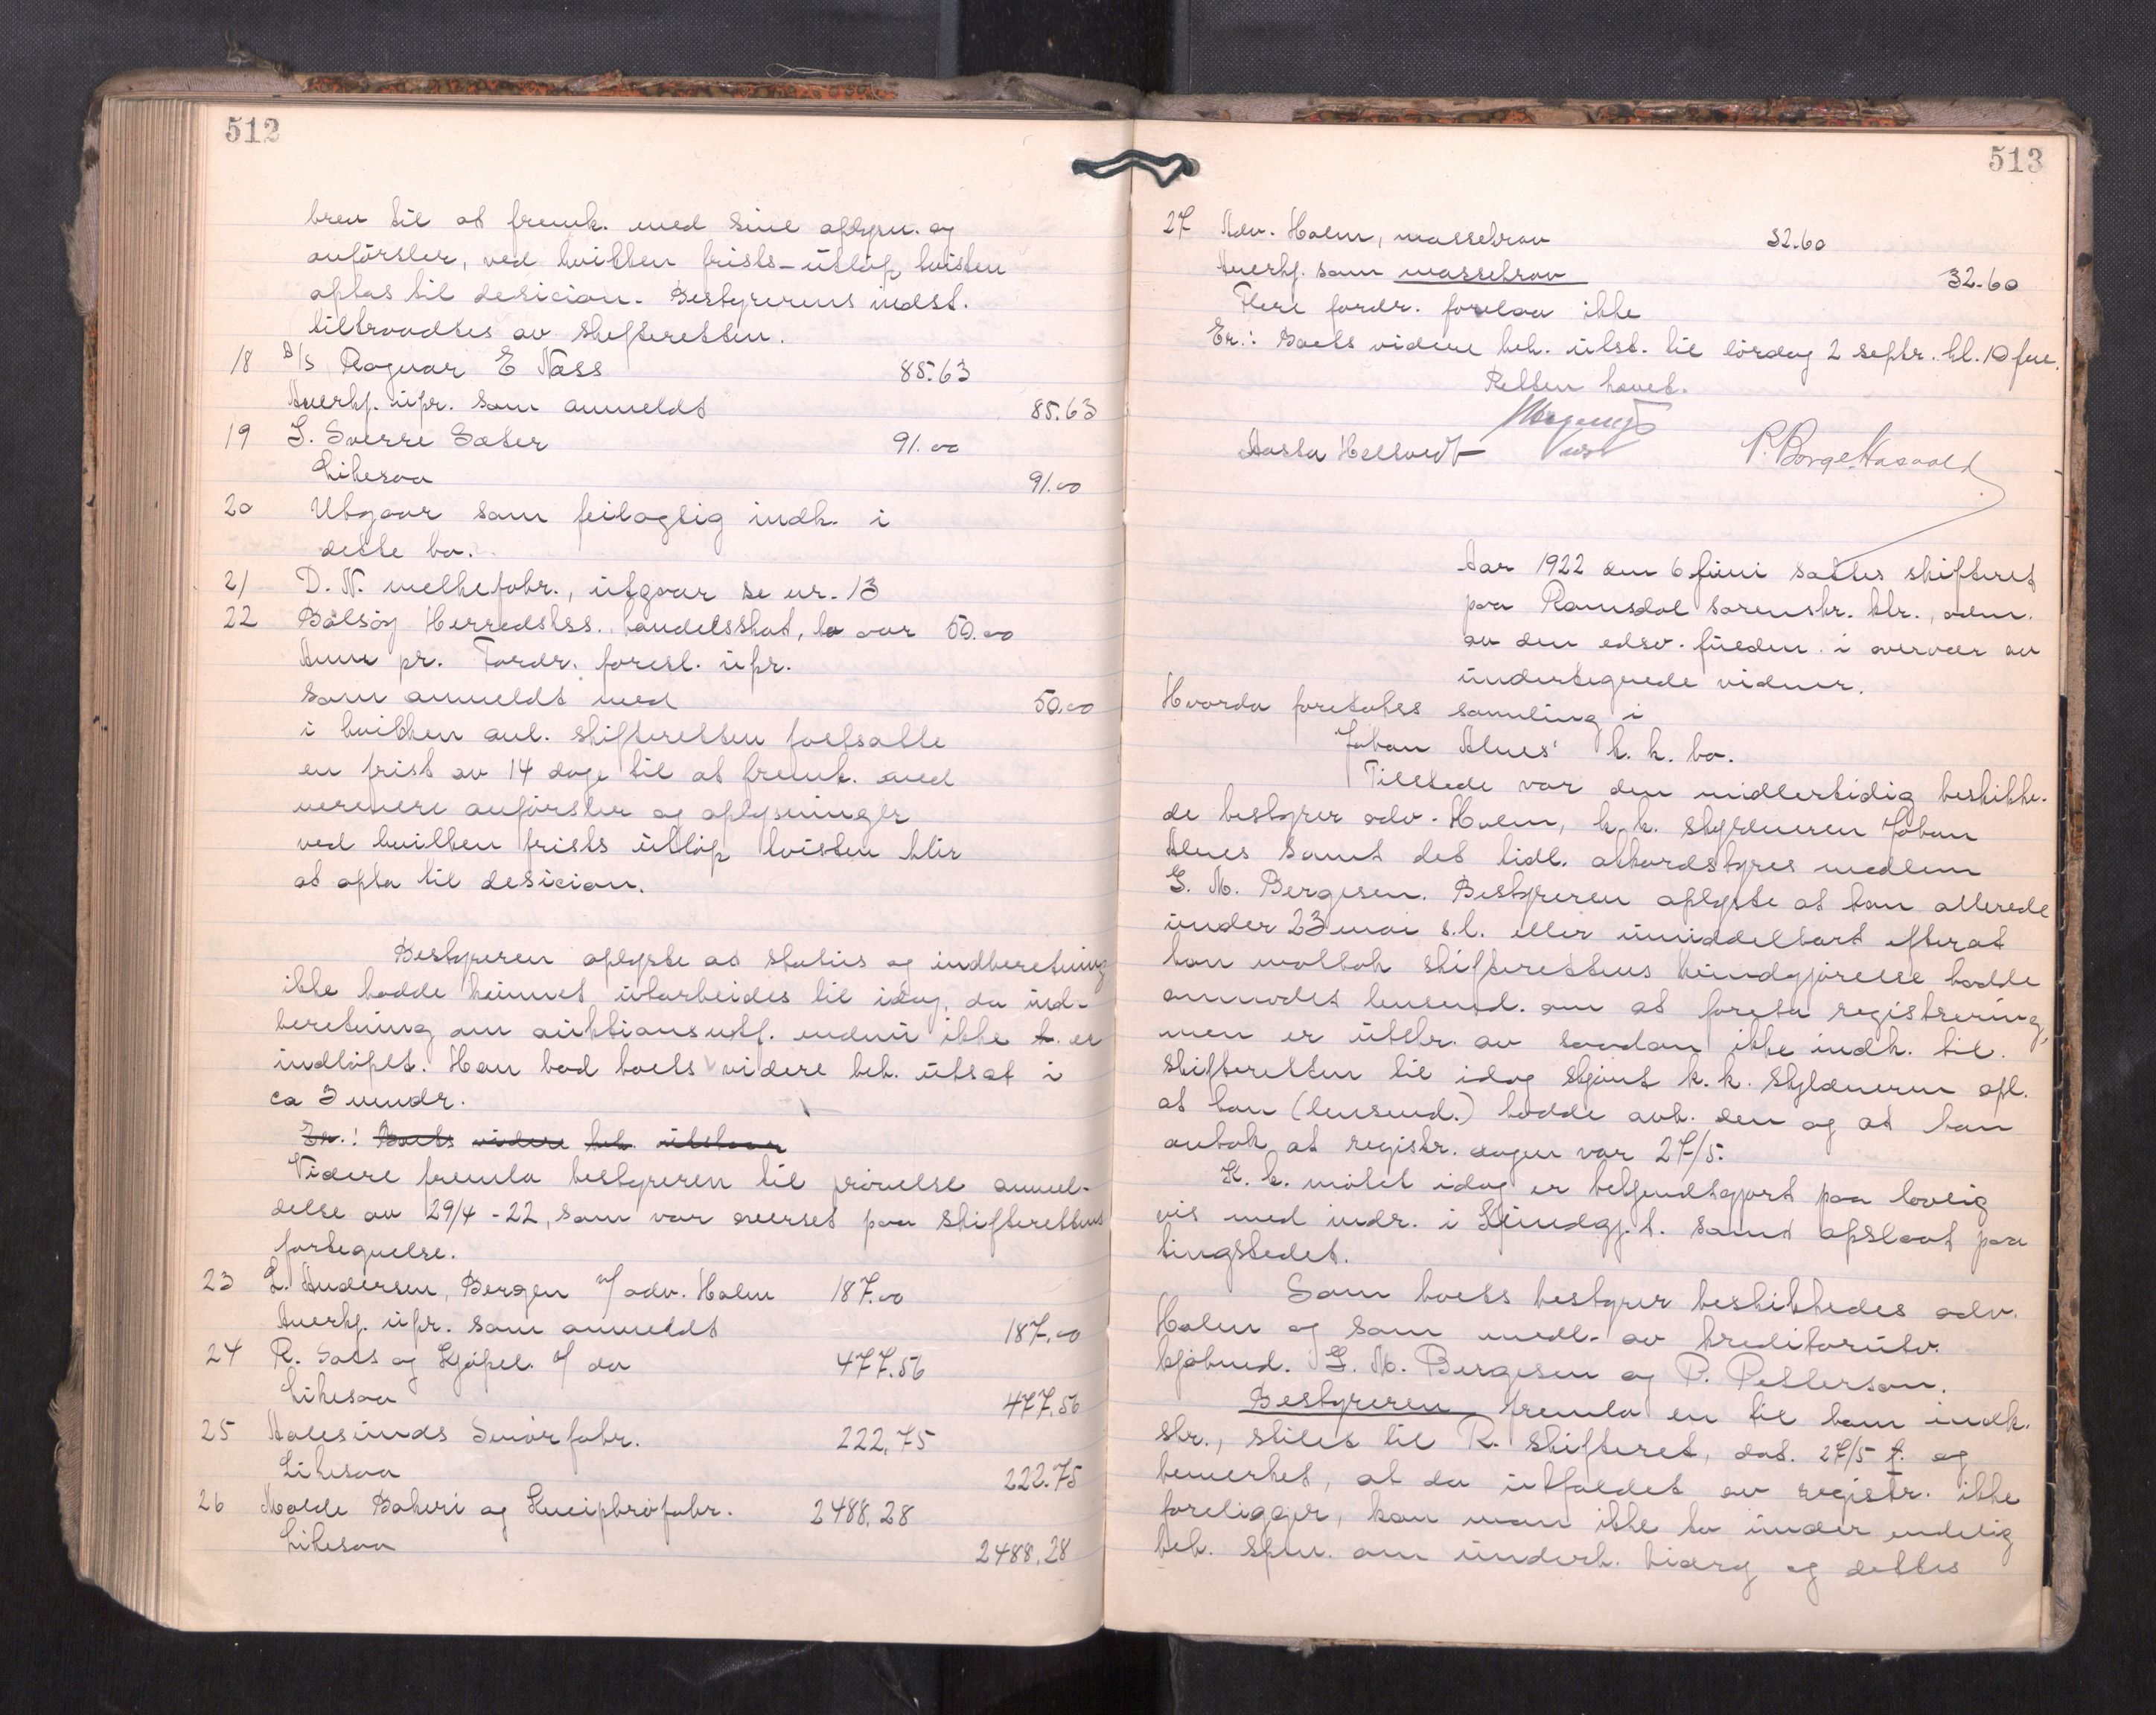 512
bren til at fremk. med sine oplysn. og
anförsler, ved hvilken frists-utløp tvisten
optas til desicion. Bestyrerens indst.
tiltraadtes av skifteretten.
18 A/S Ragnar E Næss 85.63
Anerkj. upr. som anmeldt 85.63
19 L. Sverre Sæter 91.00
Likesaa 91.00
20 Utgaar som feilagtig indk. i
dette bo.
21 D. N. melkefabr., utgaar se nr. 13
22 Bolsöy Herredskss. handelsskat, ½ aar 50.00
Anm pr. Fordr. foresl. upr.
som anmeldt med 50.00
i hvilken anl. skifteretten fastsatte
en frist av 14 dage til at fremk. med
nærmere anförsler og oplysninger
ved hvilken frists utløp tvisten blir
at opta til desicion.
Bestyreren oplyste at status og indberetning
ikke hadde kunnet utarbeides til idag, da ind-
beretning om auktionsutf. endnu ikke t. er
indløpet. Han bad boets videre beh. utsat i
ca 3 mndr.
Er.: Boets videre beh. utstaar
Videre fremla bestyreren til prövelse anmel-
delse av 29/4 -22, som var overset paa skifterettens
fortegnelse.
23 L. Andersen, Bergen v/ adv. Holm 187.00
Anerkj. upr. som anmeldt 187.00
24 R. Sats og Kjøpel. v/ do 477.56
Likesaa 477.56
25 Aalesunds Smörfabr. 222.75
Likesaa 222.75
26 Molde Bakeri og Kneipbröfabr. 2488.28
Likesaa 2488.28
513
27 Adv. Holm, massekrav 32.60
Anerkj. som massekrav 32.60
Flere fordr. forelaa ikke
Er.: Boets videre beh. utst. til lördag 2 septr. kl. 10 fm.
Retten hævet.
Aasta Hellvedt P. Borge Hasvold
Aar 1922 den 6 juni sattes skifteret
paa Romsdal sorenskr. ktr., adm.
av den edsv. fuldm. i overvær av
undertegnede vidner.
Hvorda foretokes samling i
Johan Alnes' k. k. bo.
Tilstede var den midlertidig beskikke-
de bestyrer adv. Holm, k. k. skyldneren Johan
Alnes samt det tidl. akkordstyres medlem
G. M. Bergesen. Bestyreren oplyste at han allerede
under 23 mai s.l. eller umiddelbart efterat
han mottok skifterettens kundgjörelse hadde
anmodet lensmd. om at foreta registrering,
men er utskr. av saadan ikke indk. til
skifteretten til idag skjönt k. k. skyldneren opl.
at han (lensmd.) hadde avh. den og at han
antok at registr. dagen var 27/5.
K. k. mötet idag er bekjendtgjort paa lovlig
vis med indr. i Kundgj. t. samt opslaat paa
tingstedet.
Som boets bestyrer beskikkedes adv.
Holm og som medl. av kreditorutv.
kjöbmd. G. M. Bergesen og P. Petterson.
Bestyreren fremla en til ham indk.
skr., stilet til R. skifteret, dat. 27/5 f. og
bemerket, at da utfaldet av registr. ikke
foreligger, kan man ikke ta under endelig
beh. spm. om underh. bidrag og dettes